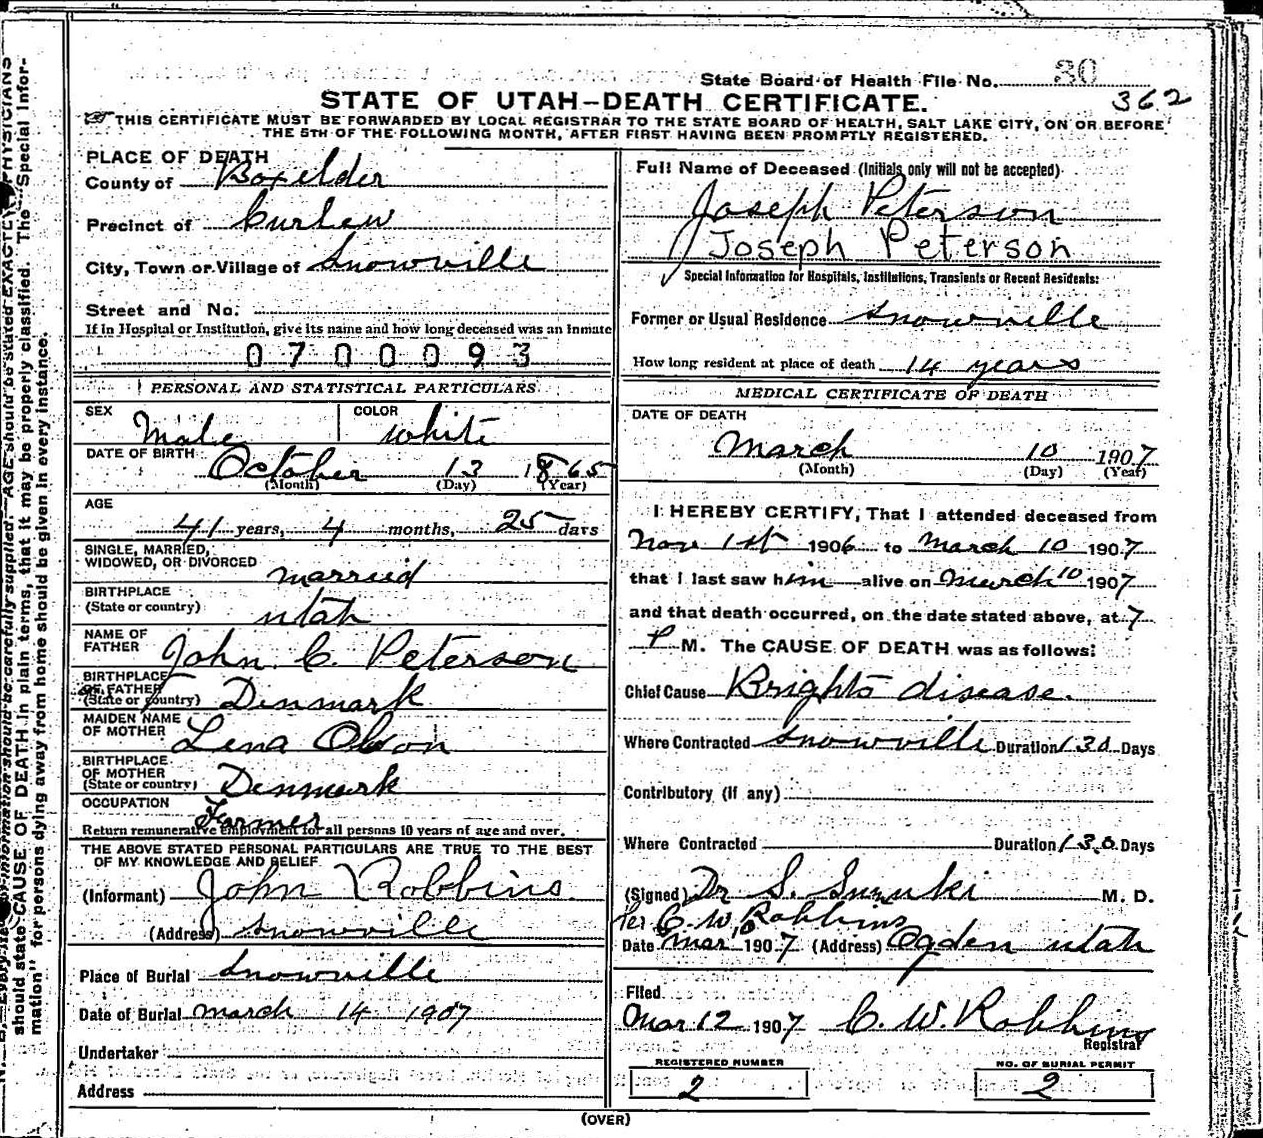 State Board of Health File No. 30
362
STATE OF UTAH-DEATH CERTIFICATE.
THIS CERTIFICATE MUST BE FORWARDED BY LOCAL REGISTRAR TO THE STATE BOARD OF HEALTH, SALT LAKE CITY, ON OR BEFORE
THE 5TH OF THE FOLLOWING MONTH, AFTER FIRST HAVING BEEN PROMPTLY REGISTERED.
PLACE OF DEATH
County of Boxelder
Precinct of Curlew
City, Town or Village of Snowville
Street and No.
If in Hospital or Institution, give its name and how long deceased was an inmate
0700093
PERSONAL AND STATISTICAL PARTICULARS
SEX Male COLOR white
DATE OF BIRTH October 13 1865
(Month) (Day) (Year)
AGE
41 years, 4 months, 25 days
SINGLE, MARRIED,
WIDOWED, OR DIVORCED married
BIRTHPLACE
(State or country) utah
NAME OF
FATHER John C. Peterson
BIRTHPLACE
OF FATHER
(State or country) Denmark
MAIDEN NAME
OF MOTHER Lena Olson
BIRTHPLACE
OF MOTHER
(State or country) Denmark
OCCUPATION Farmer
Return remunerative employment for all persons 10 years of age and over.
THE ABOVE STATED PERSONAL PARTICULARS ARE TRUE TO THE BEST
OF MY KNOWLEDGE AND BELIEF
(Informant) John Robbins
(Address) Snowville
Place of Burial Snowville
Date of Burial march 14 1907
Undertaker
Address
Full Name of Deceased (Initials only will not be accepted)
Joseph Peterson
Joseph Peterson
Special Information for Hospitals, Institutions, Transients or Recent Residents:
Former or Usual Residence Snowville
How long resident at place of death 14 years
MEDICAL CERTIFICATE OF DEATH
DATE OF DEATH
March 10 1907
(Month) (Day) (Year)
I HEREBY CERTIFY, That I attended deceased from
Nov 1st 1906 to March 10 1907
that I last saw him alive on March 10 1907
and that death occurred, on the date stated above, at 7
P M. The CAUSE OF DEATH was as follows:
Chief Cause Brights disease.
Where Contracted Snowville Duration 130 Days
Contributory (if any)
Where Contracted Duration 130 Days
(Signed) Dr S. Suzuki M. D.
Per C. W. Robbins
Date Mar 10 1907 (Address) Ogden utah
Filed
Mar 12 1907 C. W. Robbins
Registrar
REGISTERED NUMBER
2
NO. OF BURIAL PERMIT
2
(OVER)
information should be carefully supplied. AGE should be stated EXACTLY. PHYSICIANS
should state CAUSE OF DEATH in plain terms, that it may be properly classified. The "Special Infor-
mation" for persons dying away from home should be given in every instance.